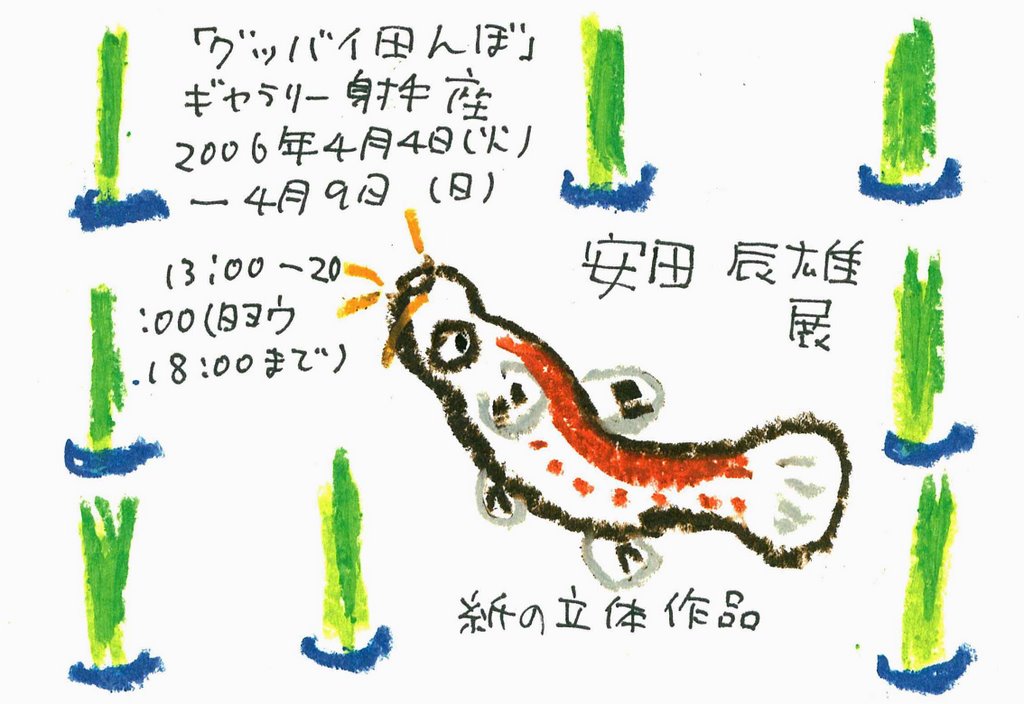 「グッバイ田んぼ」
ギャラリー射手座
2006年4月4日(火)
ー4月9日 (日)
13:00ー20
:00(日ヨウ
18:00まで)
安田 辰雄
展
紙の立体作品